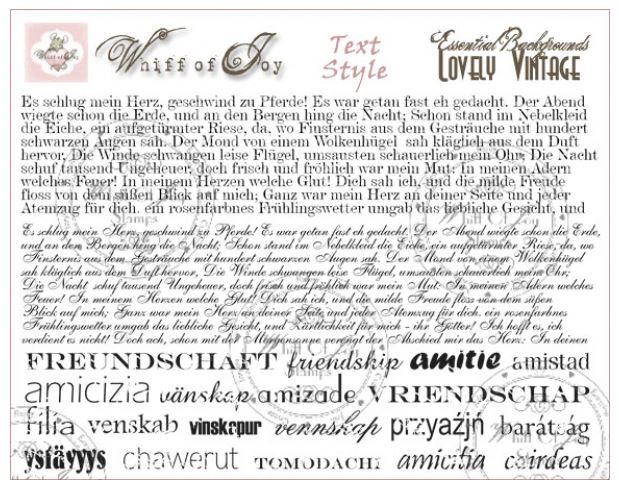 Whiff of Joy
Text
Style
Essential Backgrounds
Lovely Vintage
Es schlug mein Herz, geschwind zu Pferde! Es war getan fast eh gedacht. Der Abend
wiegte schon die Erde, und an den Bergen hing die Nacht; Schon stand im Nebelkleid
die Eiche, ein aufgetürmter Riese, da, wo Finsternis aus dem Gesträuche mit hundert
schwarzen Augen sah. Der Mond von einem Wolkenhügel sah kläglich aus dem Duft
hervor, Die Winde schwangen leise Flügel, umsausten schauerlich mein Ohr; Die Nacht
schuf tausend Ungeheuer, doch frisch und fröhlich war mein Mut: In meinen Adern
welches Feuer! In meinem Herzen welche Glut! Dich sah ich, und die milde Freude
floss von dem süßen Blick auf mich; Ganz war mein Herz an deiner Seite und jeder
Atemzug für dich. ein rosenfarbnes Frühlingswetter umgab das liebliche Gesicht, und
Es schlug mein Herz, geschwind zu Pferde! Es war getan fast eh gedacht. Der Abend wiegte schon die Erde,
und an dem Bergen hing die Nacht; Schon stand im Nebelkleid die Eiche, ein aufgetürmter Riese, da, wo
Finsternis aus dem Gesträuche mit hundert schwarzen Augen sah. Der Mond von einem Wolkenhügel
sah kläglich aus dem Duft hervor, Die Winde schwangen leise Flügel, umsausten schauerlich mein Ohr;
Die Nacht schuf tausend Ungeheuer, doch frisch und fröhlich war mein Mut: In meinen Adern welches
Feuer! In meinem Herzen welche Glut! Dich sah ich, und die milde Freude floss von dem süßen
Blick auf mich; Ganz war mein Herz an deiner Seite und jeder Atemzug für dich. ein rosenfarbnes
Frühlingswetter umgab das liebliche Gesicht, und Zärtlichkeit für mich - ihr Götter! Ich hofft es, ich
verdient es nicht! Doch ach, schon mit der Morgensonne verengt der Abschied mir das Herz: In deinen
FREUNDSCHAFT friendship amitie amistad
amicizia vänskap amizade VRIENDSCHAP
filia venskab vinskapur vennskap przyaźń barátság
ystävyys chawerut TOMODACHI amicitia cairdeas